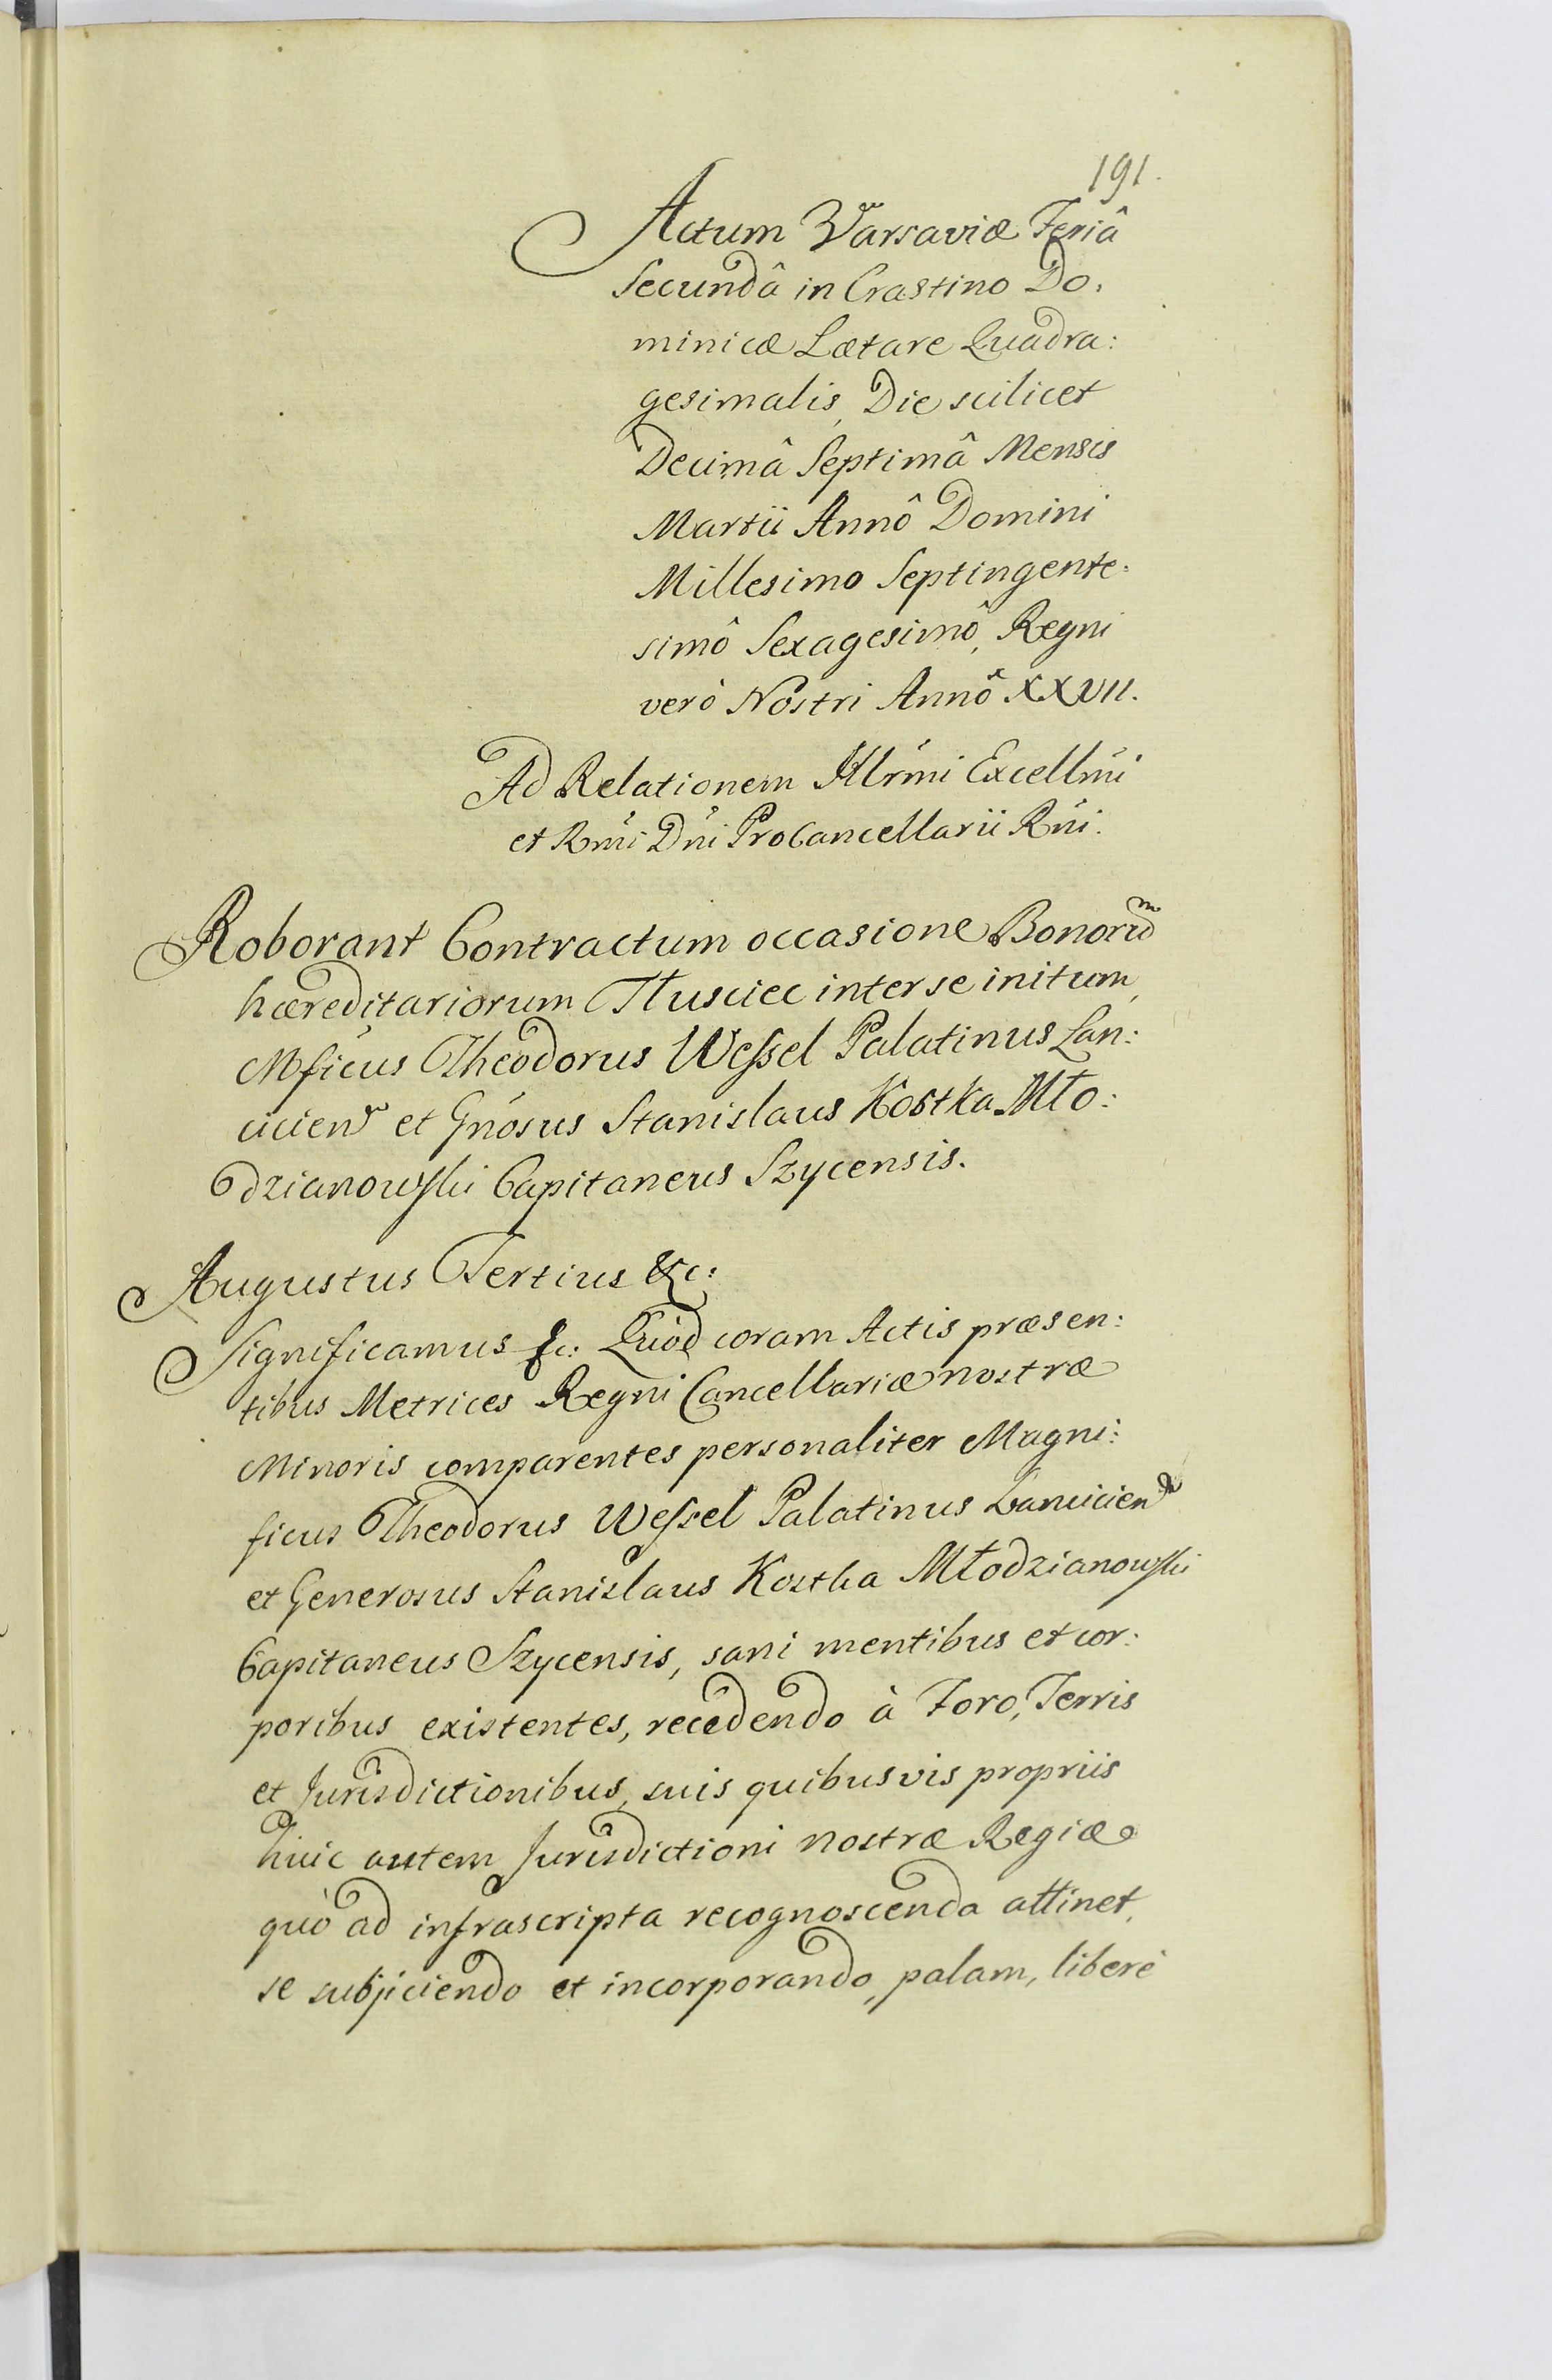 191.
Actum Varsaviæ Feriâ
Secundâ in Crastino Do:
minicæ Lætare Quadra:
gesimalis, Die scilicet
Decimâ Septimâ Mensis
Martii Annô Domini
Millesimo Septingente:
simô Sexagesimô, Regni
verò Nostri Annô XXVII.
Ad Relationem Illrmi Excellmi
et Rmi Dni ProCancellarii Rni.
Roborant Contractum occasione Bonorum
hæreditariorum Tłusciec inter se initum,
Mficus Theodorus Wessel Palatinus Lan:
cicien et Gnosus Stanislaus Kostka Mło:
dzianowski Capitaneus Szycensis.
Augustus Tertius &c:
Significamus &c: Quod coram Actis præsen:
tibus Metrices Regni Cancellariæ nostræ
Minoris comparentes personaliter Magni:
ficus Theodorus Wessel Palatinus Lancicien
et Generosus Stanislaus Kostka Młodzianowski
Capitaneus Szycensis, sani mentibus et cor:
poribus existentes, recedendo à Foro, Terris
et Jurisdictionibus, suis quibusvis propriis
huic autem Jurisdictioni nostræ Regiæ
quò ad infrascripta recognoscenda attinet,
se subjiciendo et incorporando, palam, liberè